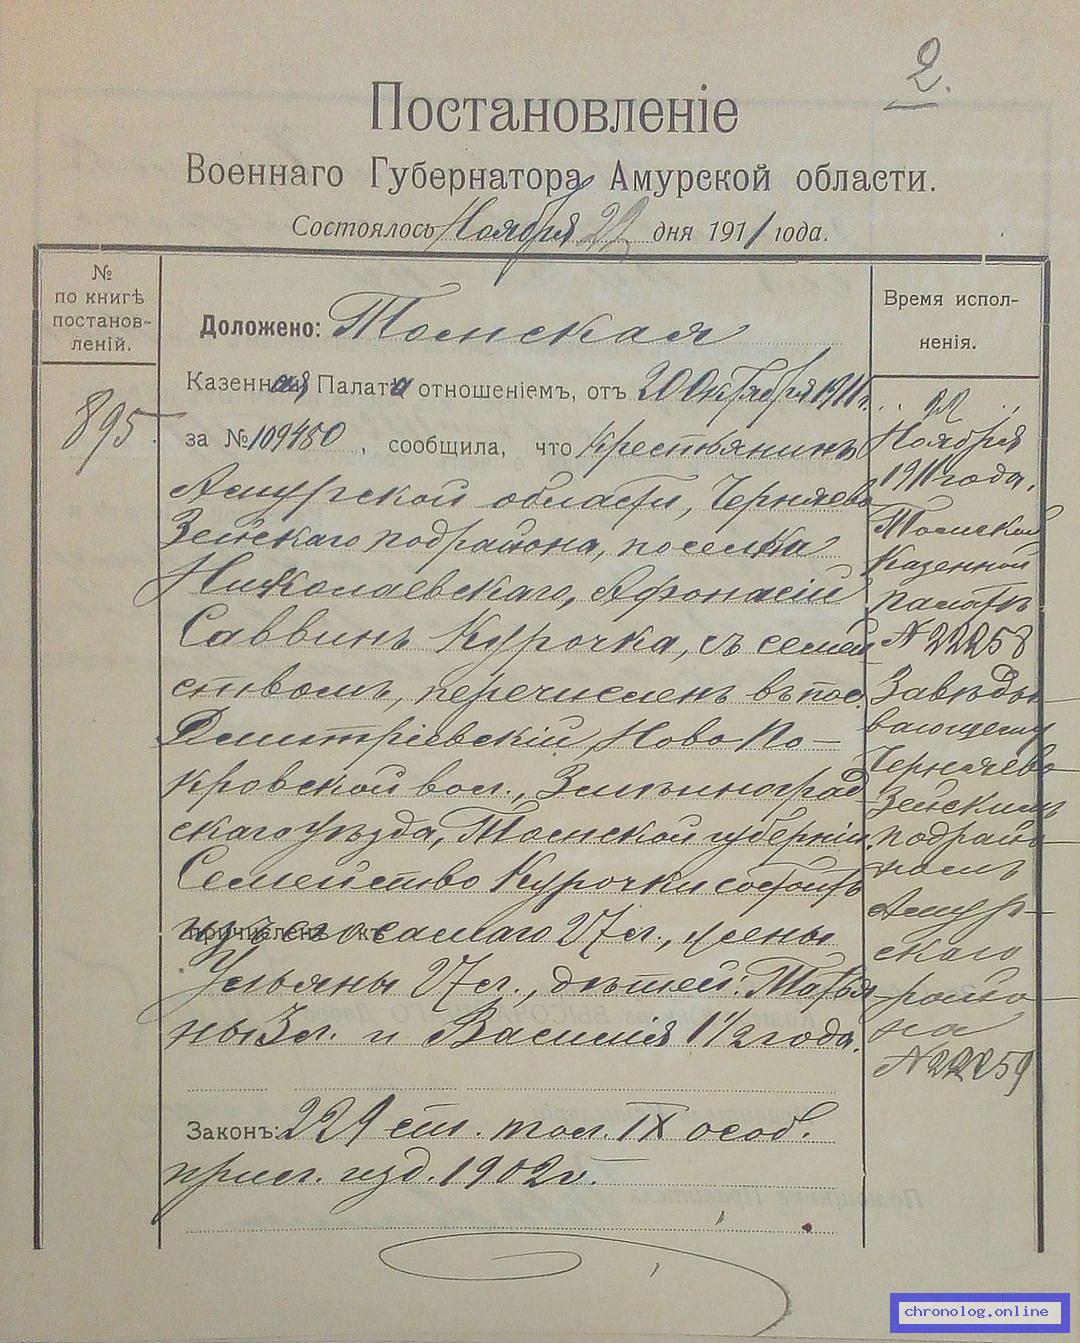 2.
Постановленіе
Военнаго Губернатора Амурской области.
Состоялось Ноября 22 дня 1911 года.
№
по книгѣ
постанов-
леній.
895.
Доложено: Томская
Казенная Палата отношеніемъ, отъ 20 Октября 1911 г.
за № 109480, сообщила, что крестьянинъ
Амурской области, Черняево-
Зейскаго подрайона, поселка
Николаевскаго, Афонасій
Саввинъ Курочка, съ семей
ствомъ, перечисленъ въ пос.
Дмитріевскій Ново-По-
кровской вол., Змѣиноград
скаго уѣзда, Томской губерніи.
Семейство Курочки состоитъ
изъ его самаго 27 л., жены
Ульяны 27 л., дѣтей: Татья
ны 3 л. и Василія 1 1/2 года.
Законъ: 229 ст. тол. IX особ.
прил. изд. 1902 г.
Время испол-
ненія.
22
Ноября
1911 года.
Томской
Казенной
палатѣ
№ 22258
Завѣды-
вающему
Черняево-
Зейскимъ
подрайо-
номъ
Амур-
скаго
райо-
на
№ 22259
chronolog.online